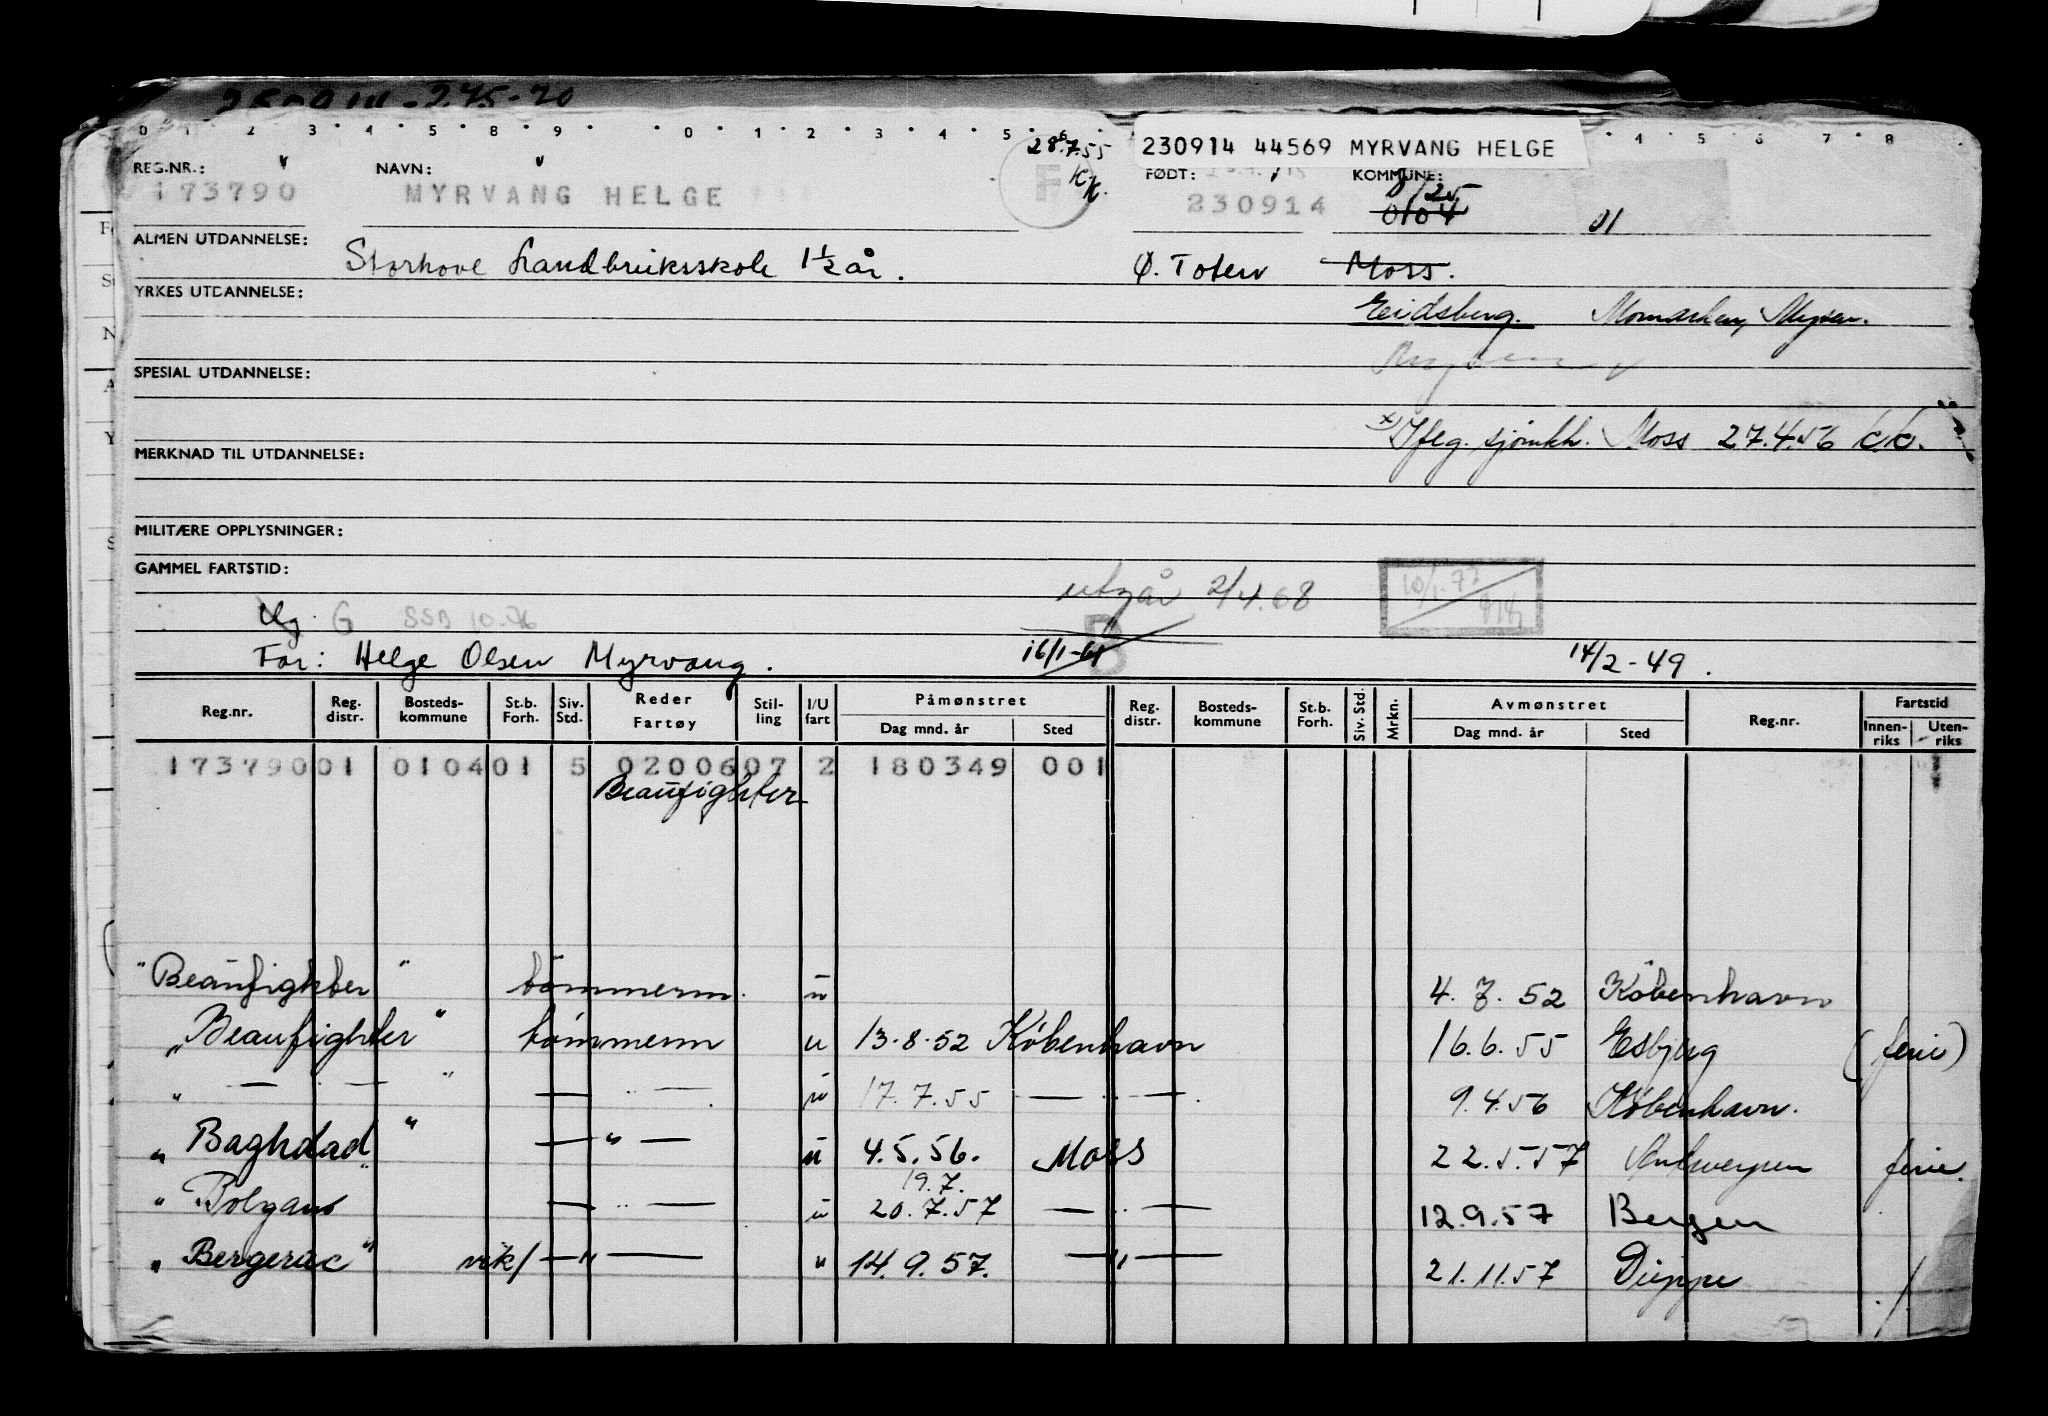 0 1 2 3 4 5 8 9 0 1 2 3 4 5 6 4 5 6 7 8
28.7.55 230914 44569 MYRVANG HELGE
REG.NR.: NAVN: KK. FØDT: KOMMUNE:
173790 MYRVANG HELGE F 230914 0104 01
ALMEN UTDANNELSE: Storhove Landbruksskole 1½ år. Ø. Toten Moss.
YRKES UTDANNELSE: Eidsberg. Momarken, Mysen.
SPESIAL UTDANNELSE:
x Iflg. sjømkh. Moss 27.4.56 KK.
MERKNAD TIL UTDANNELSE:
MILITÆRE OPPLYSNINGER:
GAMMEL FARTSTID:
utgår 2/4.68 10/1.72
G SSB 10.76 B
Far: Helge Olsen Myrvang. 16/1-61 14/2-49.
Reg.nr. Reg. distr. Bosteds-kommune St.b. Forh. Siv. Std. Reder Fartøy Stil-ling I/U fart Påmønstret Dag mnd. år Sted Reg. distr. Bosteds-kommune St.b. Forh. Siv. Std. Mrkn. Avmønstret Dag mnd. år Sted Reg.nr. Fartstid Innen-riks Uten-riks
173790 01 0104 01 5 02006 07 2 180349 001
Beaufighter
"Beaufighter" tømmerm. u 4.7.52 København
"Beaufighter" tømmerm u 13.8.52 København 16.6.55 Esbjerg (ferie)
" — " — " — u 17.7.55 — " — 9.4.56 København.
"Baghdad" — " — u 4.5.56. Moss 22.5.57 Antwerpen ferie.
19.7.
"Bolzano" — " — u 20.7.57 — " — 12.9.57 Bergen
"Bergerac" vik/ — " — " 14.9.57. — " — 21.11.57 Dieppe ./